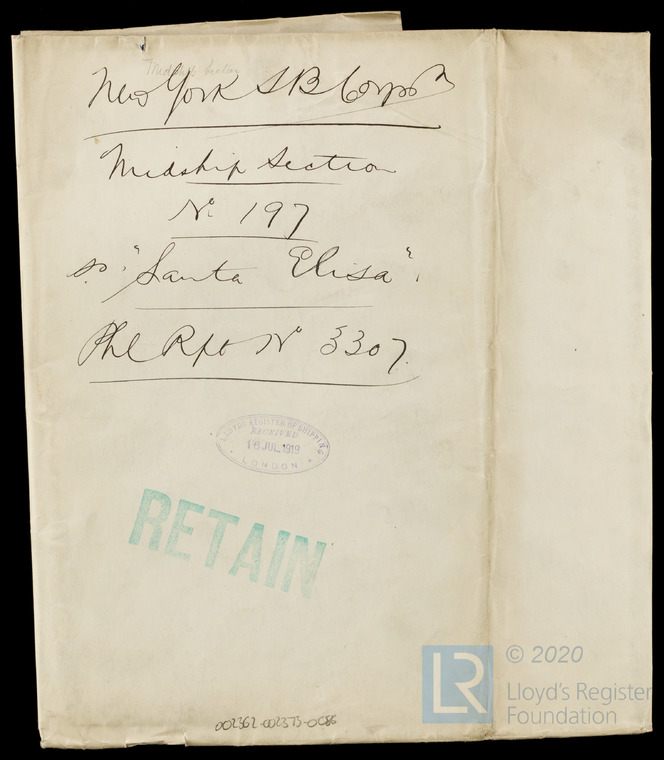 Midship Section
New York S B Corpon
Midship Section
No 197
S.S. "Santa Elisa".
Phl Rpt No 3307.
LLOYDS REGISTER OF SHIPPING
RECEIVED
16 JUL 1919
LONDON
RETAIN
002362-002373-0086
LR
© 2020
Lloyd's Register
Foundation